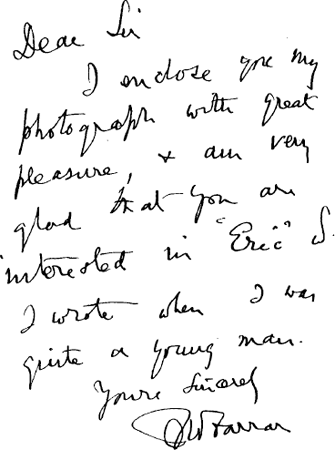 Dear Sir
I enclose you my
photograph with great
pleasure, & am very
glad that you are
interested in "Eric"
I wrote when I was
quite a young man.
Yours sincerely
FW Farrar